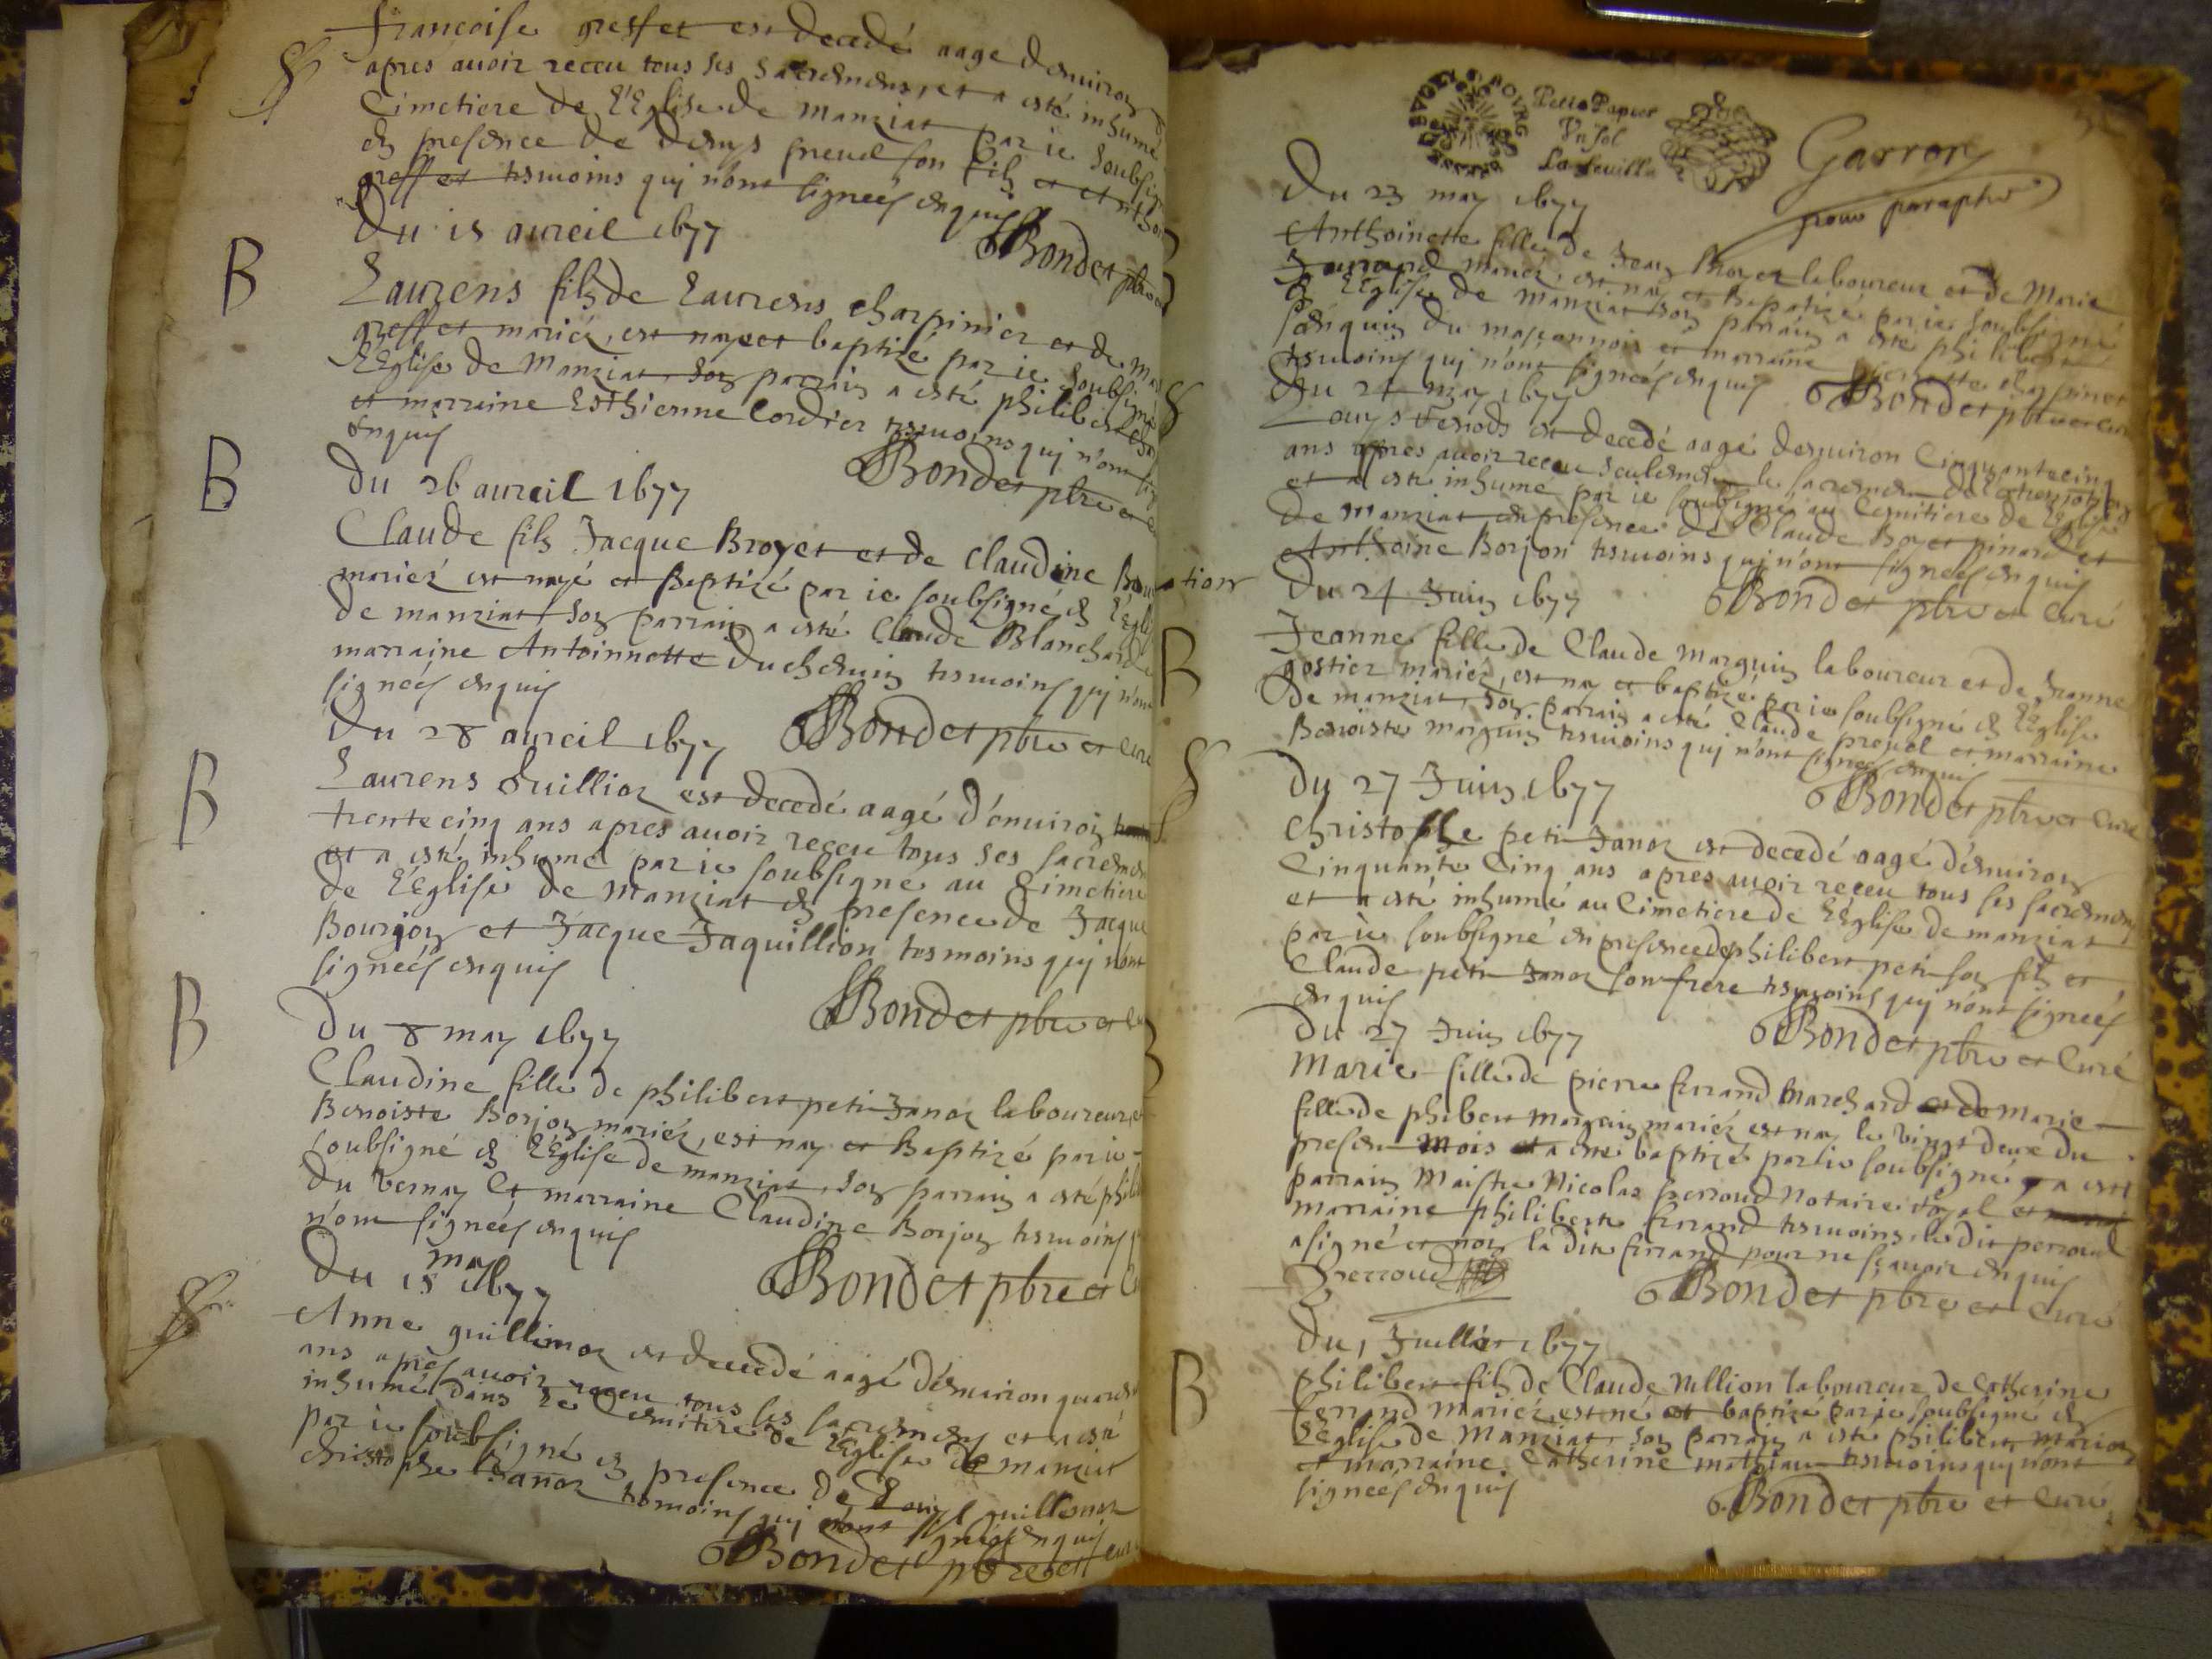 françoise greffet est decedé aage denuiron
apres auoir receu tous ses sacremens, et a esté inhumé
Cimetiere de l'Eglise de manziat par ie soubsigné
en presence de denys preuel son filz et
greffet tesmoins quj n'ont signeés enquis
Bondet pbre
Du 15 aureil 1677
B
Laurens filz de Laurens charpinier et de
greffet mariez, est naye et baptizé par ie soubsigné
l'Eglise de Manziat, son parrain a esté philibert
et marraine Esthienne Cordier tesmoins quj n'ont
enquis
Bondet pbre et
Du 26 aureil 1677
B
Claude filz Jacque Broyet et de Claudine
mariez est nayé et Baptizé par ie soubsigné en l'Egli
de manziat, son parrain a esté Claude Blanchard
marraine Antoinnette Duchemin tesmoins quj n'ont
signeés enquis
Bondet pbre et Curé
Du 28 aureil 1677
B
Laurens Guillion est decedé aagé d'enuiron
trente cinq ans apres auoir receu tous ses sacremen
et a esté inhumé par ie soubsigné au Cimetiere
de l'Eglise de Manziat en presence de Jacque
Bourjon et Jacque Jaquillion tesmoins quj n'ont
signeés enquis
Bondet pbre et
B
Du 8 may 1677
Claudine fille de philibert peti Janon laboureur et
Benoiste Borjon mariez, est nay et Baptizé par ie
soubsigné en l'Eglise de manziat, son parrain a esté phili
du Vernay Et marraine Claudine Borjon tesmoins
n'ont signeés enquis
Bondet pbre et
may
Du 15 1677
Anne guillemon est decedé aagé d'enuiron
ans apres auoir receu tous les sacremens et a esté
inhumé dans le Cemitiere de l'Eglise de manziat
par ie soubsigné en presence de Louis guillemon
christophe Janon tesmoins quj n'ont signeés enquis
Bondet pbre et curé
Petit Papier
Vn sol
La feuille
Garron
pour paraphe
Du 23 may 1677
Anthoinette fille de Jean Broyet laboureur et de Marie
mariez, est nay et baptizé par ie soubsigné
en l'Eglise de manziat son parrain a esté philibert
du masconnois et marraine
tesmoins quj n'ont signeés enquis
Bondet pbre et curé
Du 24 may 1677
Louys est decedé aagé denuiron Cinquante cinq
ans apres auoir receu seulement le sacrement de
et a esté inhumé par ie soubsigné au Cemitiere de l'Eglise
de manziat en presence de Claude Boyet pinard et
Anthoine Borjon tesmoins quj n'ont signeés enquis
Bondet pbre et Curé
Du 24 Juin 1677
B
Jeanne fille de Claude Marguin laboureur et de Jeanne
gostier mariez, est nay et baptizé par ie soubsigné en l'Eglise
de manziat, son parrain a esté Claude preuel et marraine
Benoiste marguin tesmoins quj n'ont signeés enquis
Bondet pbre et Curé
Du 27 Juin 1677
Christophe peti Janon est decedé aagé d'enuiron
Cinquante Cinq ans apres auoir receu tous les sacremens
et a esté inhumé au Cimetiere de l'Eglise de manziat
par ie soubsigné en presence de philibert peti son filz et
Claude peti Janon son frere tesmoins quj n'ont signeés
enquis
Bondet pbre et Curé
Du 27 Juin 1677
Marie fille de pierre ferrand Marchard et de marie
fille de phibert marguin mariez est nay le vingt deux du
present Mois et a esté baptizé par ie soubsigné a esté
parrain Maistre Nicolas perroud Notaire royal et
marraine philiberte ferrand tesmoins, le dit perroud
a signé et non la dite ferrand pour ne scauoir enquis
Perroud
Bondet pbre et Curé
Du 1 Juillet 1677
B
philibert filz de Claude Million laboureur de Catherine
ferrand mariez est né et baptizé par ie soubsigné en
l'Eglise de Manziat, son parrain a esté philibert marion
et marraine Catherine mathieu tesmoins quj n'ont
signeés enquis
Bondet pbre et Curé